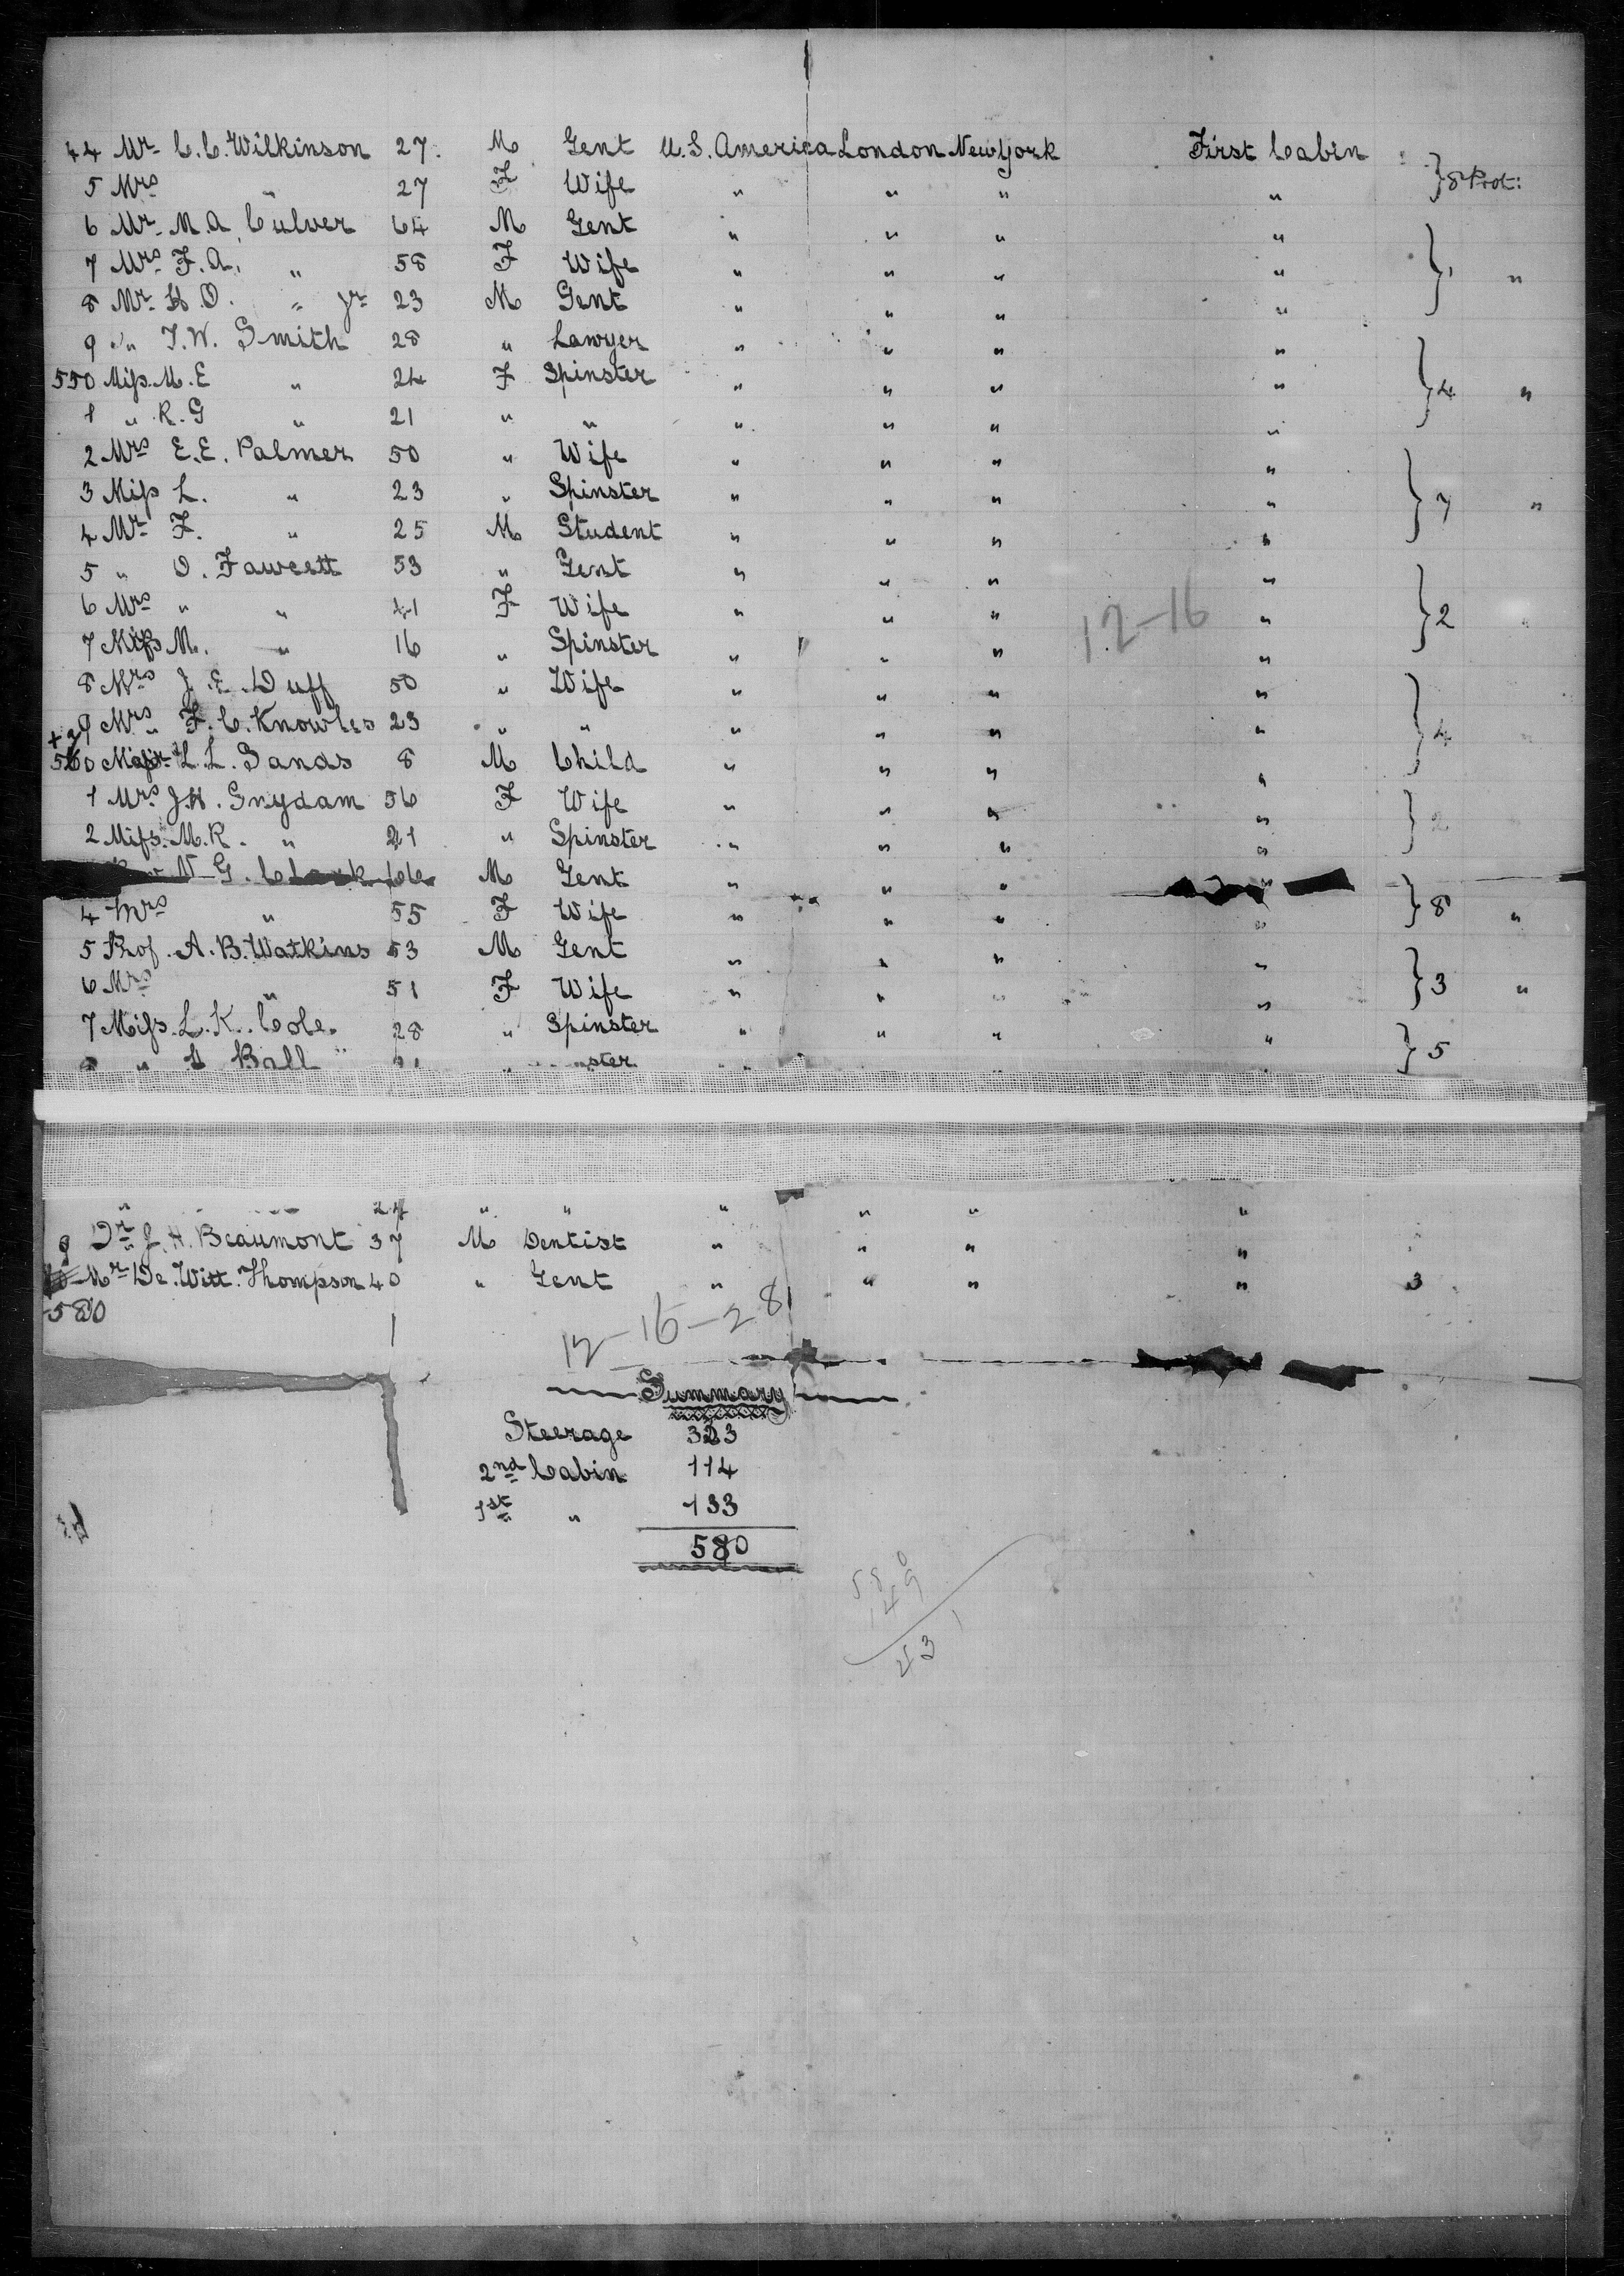 44 Mr. C. C. Wilkinson 27. M Gent U.S. America London New York First Cabin } 8 Prot:
5 Mrs " 27 F Wife " " " "
6 Mr. M. A. Culver 64 M Gent " " " "
7 Mrs F. A. " 58 F Wife " " " " } "
8 Mr. H. O. " Jr 23 M Gent " " " "
9 " T. W. Smith 28 " Lawyer " " " "
550 Miss. M. E " 24 F Spinster " " " " } 4 "
1 " R. G " 21 " " " " " "
2 Mrs E. E. Palmer 50 " Wife " " " "
3 Miss L. " 23 " Spinster " " " " } 7 "
4 Mr. F. " 25 M Student " " " "
5 " O. Fawcett 53 " Gent " " " "
6 Mrs " " 41 F Wife " " " " } 2 "
12-16
7 Miss M. " 16 " Spinster " " " "
8 Mrs J. E. Duff 50 " Wife " " " "
9 Mrs F. C. Knowles 23 " " " " " " } 4
560 L. L. Sands 8 M Child " " " "
1 Mrs J. H. Snydam 56 F Wife " " " "
2 Miss. M. R. " 21 " Spinster " " " " } 2
N. G. Clark 66 M Gent " " " "
4 Mrs " 55 F Wife " " " " } 8 "
5 Prof. A. B. Watkins 53 M Gent " " " "
6 Mrs " 51 F Wife " " " " } 3 "
7 Miss. L. K. Cole. 28 " Spinster " " " "
" Ball " " " } 5
" 24 " " " " " "
9 Dr. J. H. Beaumont 37 M Dentist " " " "
Mr. De. Witt. Thompson 40 " Gent " " " " 3
580
12-16-28
Summary
Steerage 323
2nd Cabin 114
1st " 133
580
580
149
431